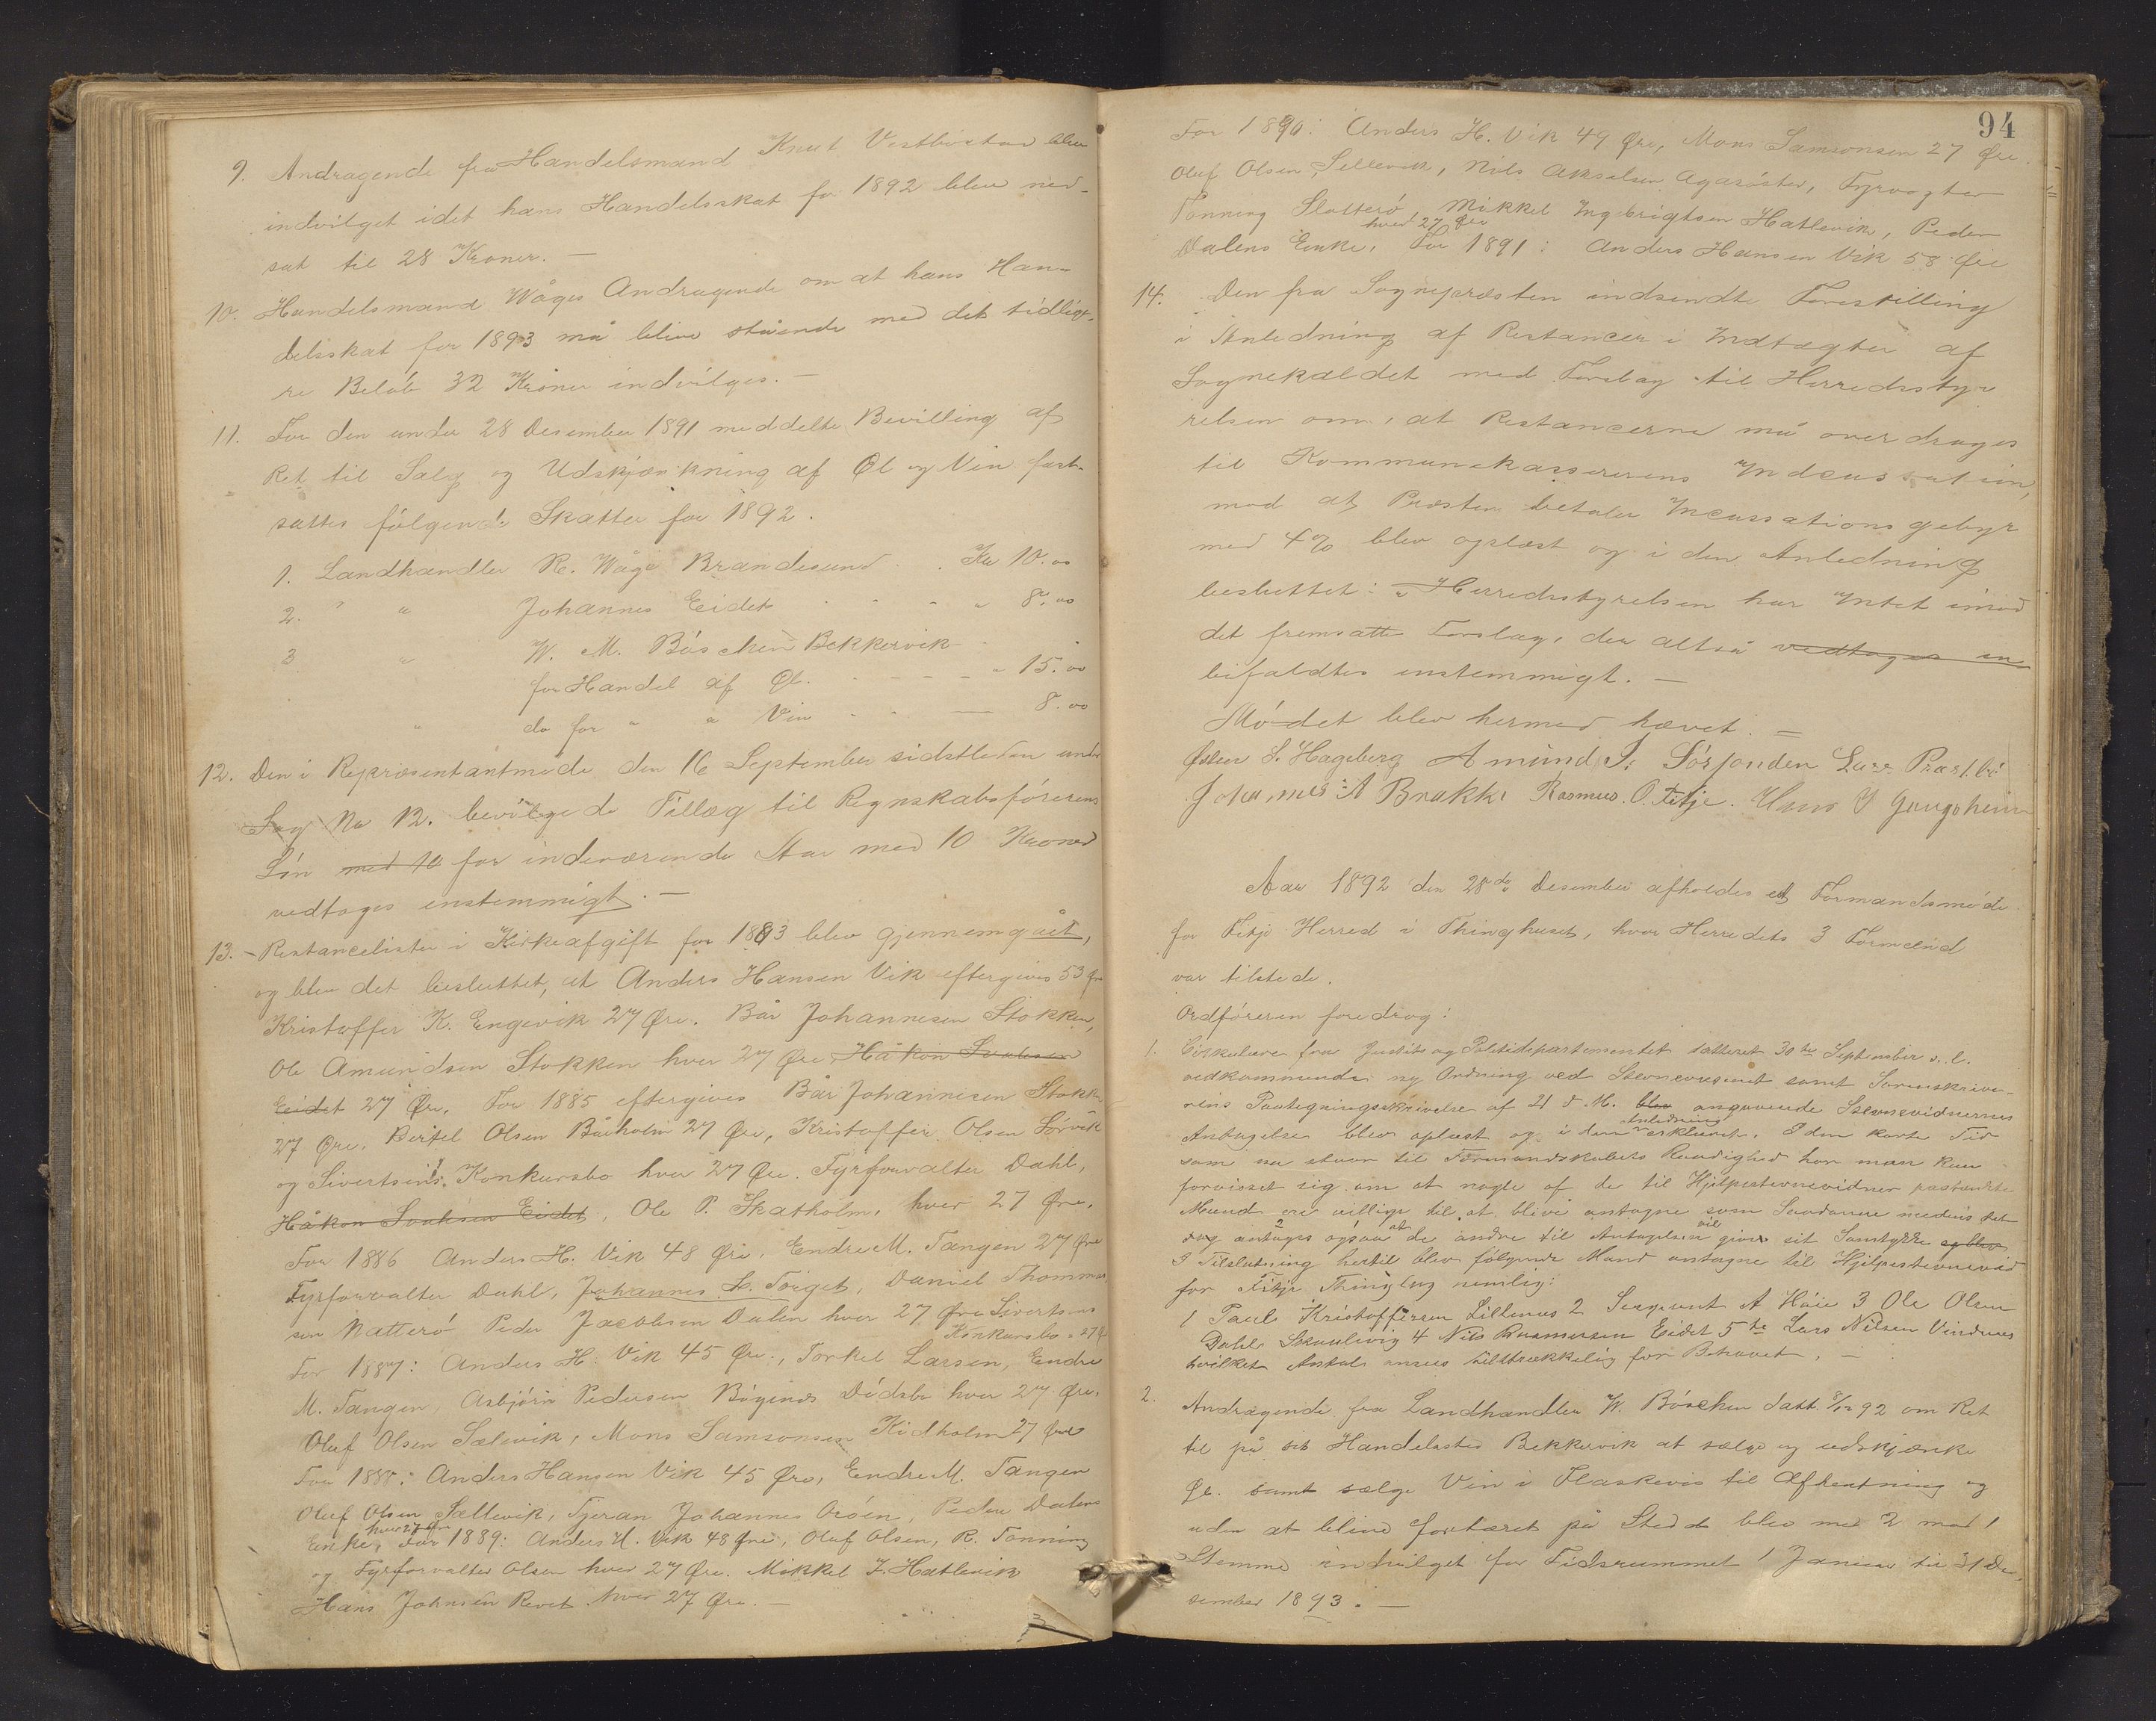 9. Andragende fra Handelsmand Knut Vestbøstad blev
indvilget idet hans Handelsskat for 1892 blev ned-
sat til 28 Kroner. —
10. Handelsmand Wåges Andragende om at hans Han-
delsskat for 1893 må blive stående med det tidlige-
re Beløb 32 Kroner indvilges. —
11. For den under 28 Desember 1891 meddelte Bevilling af
Ret til Salg og Udskjænkning af Øl og Vin fast-
sattes følgende Skatter for 1892.
1. Landhandler R. Wåge Brandesund . Kr 10.00
2. " " Johannes Eidet . . - " 8.00
3 " W. M. Böschen Bekkervik
for Handel af Øl. - - - - " 15.00
" do for " " Vin - - — 8.00
12. Den i Repræsentantmøde den 16 September sidstleden under
Sag No 12. bevilgede Tillæg til Regnskabsførerens
Løn med 10 for indeværende Aar med 10 Kroner
vedtoges enstemmigt. —
13. - Restancelister i Kirkeafgift for 1883 blev gjennemgået,
og blev det besluttet, at Anders Hansen Vik eftergives 53 Øre
Kristoffer K. Engevik 27 Øre. Bår Johannesen Stokken,
Ole Amundsen Stokken hver 27 Øre Håkon Svaksen
Eidet 27 Øre. For 1885 eftergives Bår Johannesen Stokk.
27 Øre. Bertel Olsen Bårholm 27 Øre, Kristoffer Olsen Sørvik
og Sivertsens Konkursbo hver 27 Øre. Fyrforvalter Dahl,
Håkon Svaksen Eidet, Ole P. Skatholm, hver 27 Øre.
For 1886 Anders H. Vik 48 Øre, Endre M. Tangen 27 Øre
Fyrforvalter Dahl, Johannes L. Torget, Daniel Thommes
sen Natterø Peder Jacobsen Dalen hver 27 Øre Sivertsens
Konkursbo " 27 Ø
For 1887: Anders H. Vik 45 Øre., Torkel Larsen, Endre
M. Tangen, Asbjørn Pedersen Bøgenes Dødsbo hver 27 Øre.
Oluf Olsen Sælevik, Mons Samsonsen Kidholm 27 Øre
For 1888: Anders Hansen Vik 45 Øre, Endre M. Tangen
Oluf Olsen Sællevik, Tjeran Johannes Orøen, Peder Dalens
hver 27 Øre
Enke, For 1889: Anders H. Vik 48 Øre, Oluf Olsen, R. Tonning
og Fyrforvalter Olsen hver 27 Øre. Mikkel I. Hatlevik
Hans Johnsen Revet hver 27 Øre. —
94
For 1890: Anders H. Vik 49 Øre, Mons Samsonsen 27 Øre.
Oluf Olsen Sellevik, Nils Akselsen Agasøster, Fyrvogter
Tonning Slotterø, Mikkel Ingebrigtsen Hatlevik, Peder
hver 27 Øre
Dalens Enke, For 1891: Anders Hansen Vik 58 Øre
14. Den fra Sognepræsten indsendte Forestilling
i Anledning af Restancer i Indtægter af
Sognekaldet med Forslag til Herredssty-
relsen om, at Restancerne må overdrages
til Kommunekassererens Indcassation,
mod at Præsten betaler Incassationsgebyr
med 4% blev oplæst og i den Anledning
besluttet: "Herredsstyrelsen har Intet imod
det fremsatte Forslag, der altså vedtages en
bifaldtes enstemmigt. —
Mødet blev hermed hævet. —
Østen S. Hageberg Amund J. Sørfonden Lars Præstbø
Johannes A Brakke Rasmus. O. Fitje. Hans J Gangsheim
Aar 1892 den 28de Desember afholdes et Formandsmøde
for Fitje Herred i Thinghuset, hvor Herredets 3 Formænd
var tilstede.
Ordføreren foredrog:
1. Cirkulære fra Justits og Politidepartementet datteret 30te September s. l.
vedkommende ny Ordning ved Stevnevæsenet samt Sorenskrive-
rens Paategningsskrivelse af 21 d. M. blev angaaende Stevnevidnernes
Anledning
Antagelse blev oplæst og i den erklæret. I den korte Tid
som nu staar til Formandskabets Raadighed har man kun
forvisset sig om at nogle af de til Hjelpestevnevidner paatænkte
Mænd ere villige til at blive antagne som Saadanne medens det
dog antages ogsaa at de andre til Antagelsen vil give sit Samtykke og blev
I Tilslutning hertil blev følgende Mænd antagne til Hjelpestevnevid
for Fitje Thinglag nemlig:
1 Paul Kristoffersen Lillenes 2 Sergeant A Høie 3 Ole Olsen
Dahle Skaalevig 4 Nils Rasmussen Eidet 5te Lars Nilsen Vindenes
hvilket Antal ansees tilstrækkelig for Behovet. —
2. Andragende fra Landhandler W. Böschen datt. 8/12 92 om Ret
til på sit Handelssted Bekkervik at sælge og udskjænke
Øl. samt sælge Vin i Flaskevis til Afhentning og
uden at blive fortæret på Stedet blev med 2 mod 1
Stemme indvilget for Tidsrummet 1 Januar til 31 De-
sember 1893. —